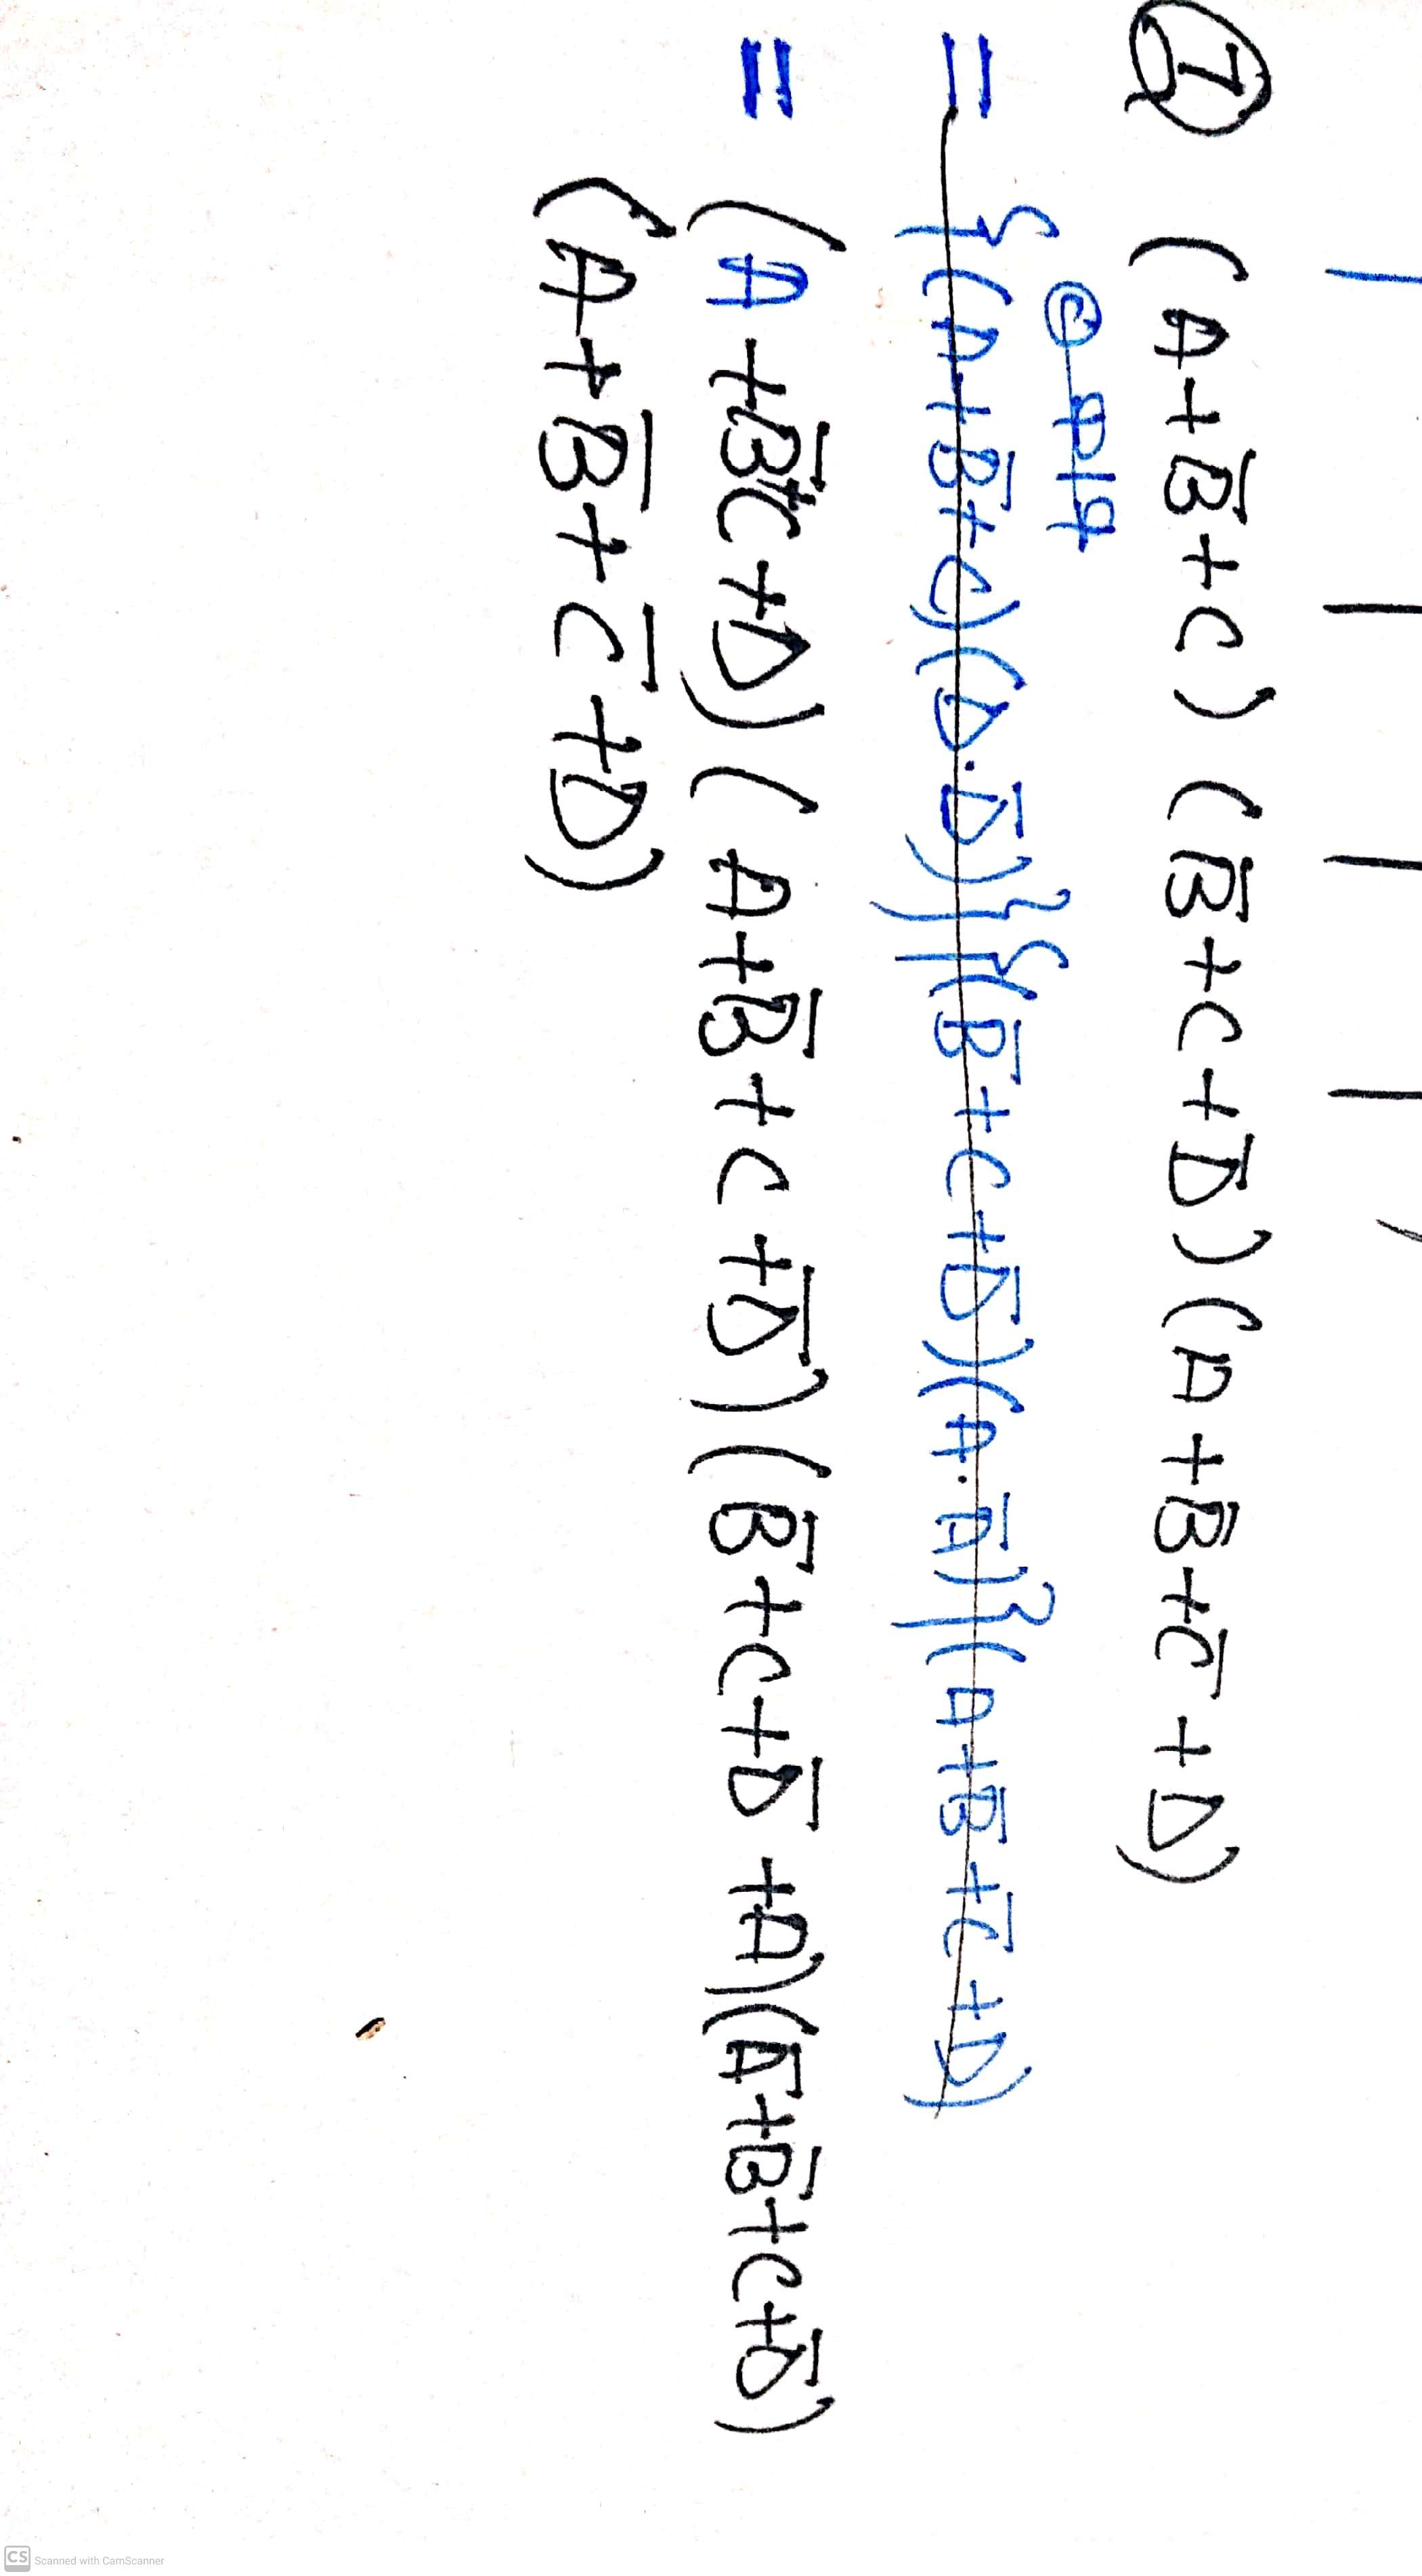 ① (A+B̅+C) (B̅+C+D̅) (A+B̅+C̅+D)
= {(A+B̅+C)(D.D̅)}{(B̅+C+D̅)(A.A̅)}(A+B̅+C̅+D)
= (A+B̅+C+D) (A+B̅+C+D̅) (B̅+C+D̅+A)(A̅+B̅+C+D̅)
(A+B̅+C̅+D)
CS Scanned with CamScanner